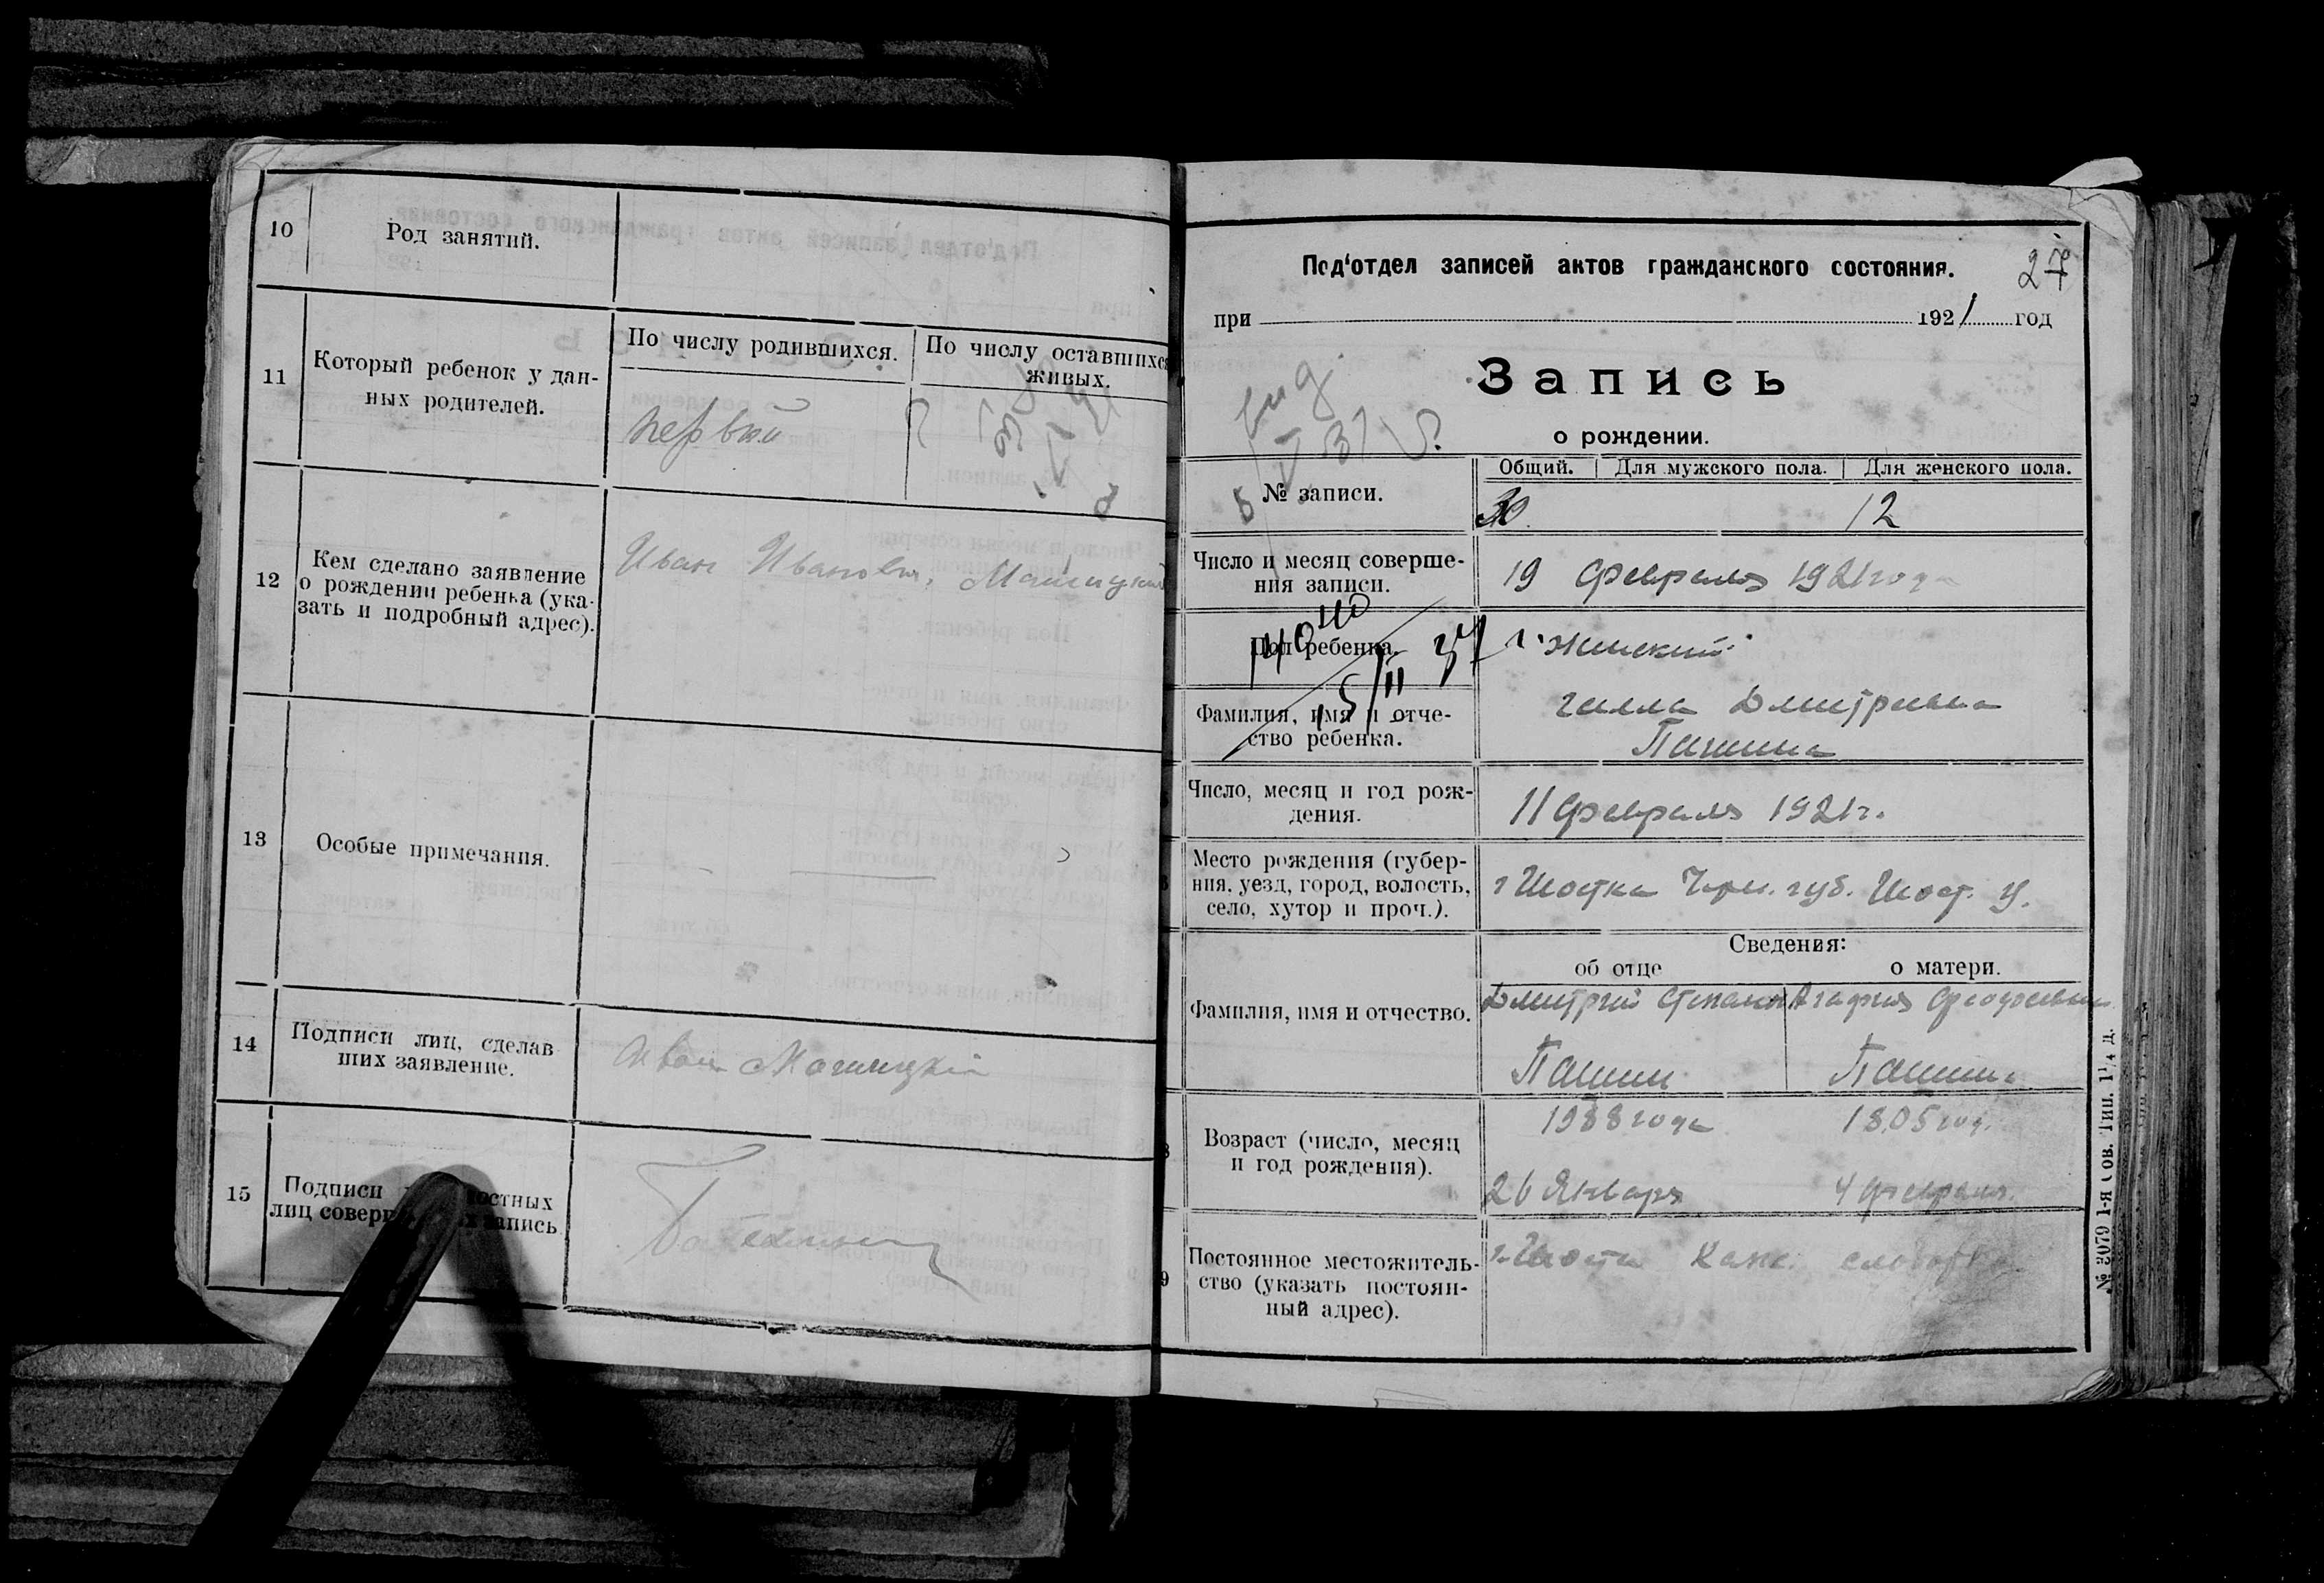 10
Род занятий.
11
Который ребенок у дан-
ных родителей.
По числу родившихся.
По числу оставшихся
живых.
первый
12
Кем сделано заявление
о рождении ребенка (ука-
зать и подробный адрес).
Иван Иванович,
13
Особые примечания.
14
Подписи лиц, сделав
ших заявление.
Иван
15
Подписи
лиц совер запись
Под'отдел записей актов гражданского состояния.
27
при 1921 год
Запись
о рождении.
№ записи.
Общий.
Для мужского пола.
Для женского пола.
30
12
Число и месяц соверше-
ния записи.
19 февраля 1921 года
Пол ребенка.
женский
Фамилия, имя и отче-
ство ребенка.
Дмитриевна
Пашина
Число, месяц и год рож-
дения.
11 февраля 1921 г.
Место рождения (губер-
ния, уезд, город, волость,
село, хутор и проч.).
г Шостка Черн. губ. Шост. у.
Сведения:
об отце
о матери.
Фамилия, имя и отчество.
Дмитрий Степан
Агафия
Пашин
Пашина
Возраст (число, месяц
и год рождения).
1988 года
26 Января
1905 год.
4 февраля.
9
Постоянное местожитель-
ство (указать постоян-
ный адрес).
№ 3079 1-я Сов. Тип. 1¼ д.